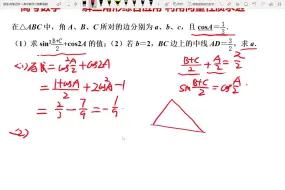 在△ABC中，角A、B、C所对的边分别为a、b、c，且cosA=1/3.
（1）求sin²(B+C)/2+cos2A的值；（2）若b=2，BC边上的中线AD=3/2，求a.
=cos²A/2+cos2A
=(1+cosA)/2+2cos²A-1
=2/3-7/9=-1/9
(2)
(B+C)/2+A/2=π/2
sin(B+C)/2=cosA/2